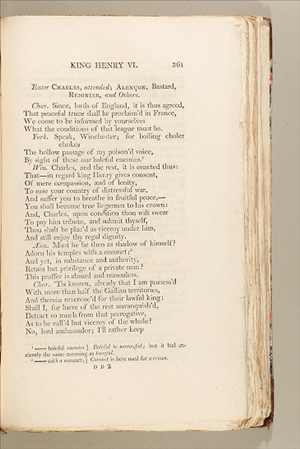 KING HENRY VI. 361
Enter CHARLES, attended; ALENÇON, Bastard,
REIGNIER, and Others.
Char. Since, lords of England, it is thus agreed,
That peaceful truce shall be proclaim'd in France,
We come to be informed by yourselves
What the conditions of that league must be.
York. Speak, Winchester; for boiling choler
chokes
The hollow passage of my poison'd voice,
By sight of these our baleful enemies.¹
Win. Charles, and the rest, it is enacted thus:
That—in regard king Henry gives consent,
Of mere compassion, and of lenity,
To ease your country of distressful war,
And suffer you to breathe in fruitful peace,—
You shall become true liegemen to his crown:
And, Charles, upon condition thou wilt swear
To pay him tribute, and submit thyself,
Thou shalt be plac'd as viceroy under him,
And still enjoy thy regal dignity.
Alen. Must he be then as shadow of himself?
Adorn his temples with a coronet;²
And yet, in substance and authority,
Retain but privilege of a private man?
This proffer is absurd and reasonless.
Char. 'Tis known, already that I am possess'd
With more than half the Gallian territories,
And therein reverenc'd for their lawful king:
Shall I, for lucre of the rest unvanquish'd,
Detract so much from that prerogative,
As to be call'd but viceroy of the whole?
No, lord ambassador; I'll rather keep
¹ —— baleful enemies.] Baleful is sorrowful; but it had an-
ciently the same meaning as baneful.
² —— with a coronet;] Coronet is here used for a crown.
D D 2